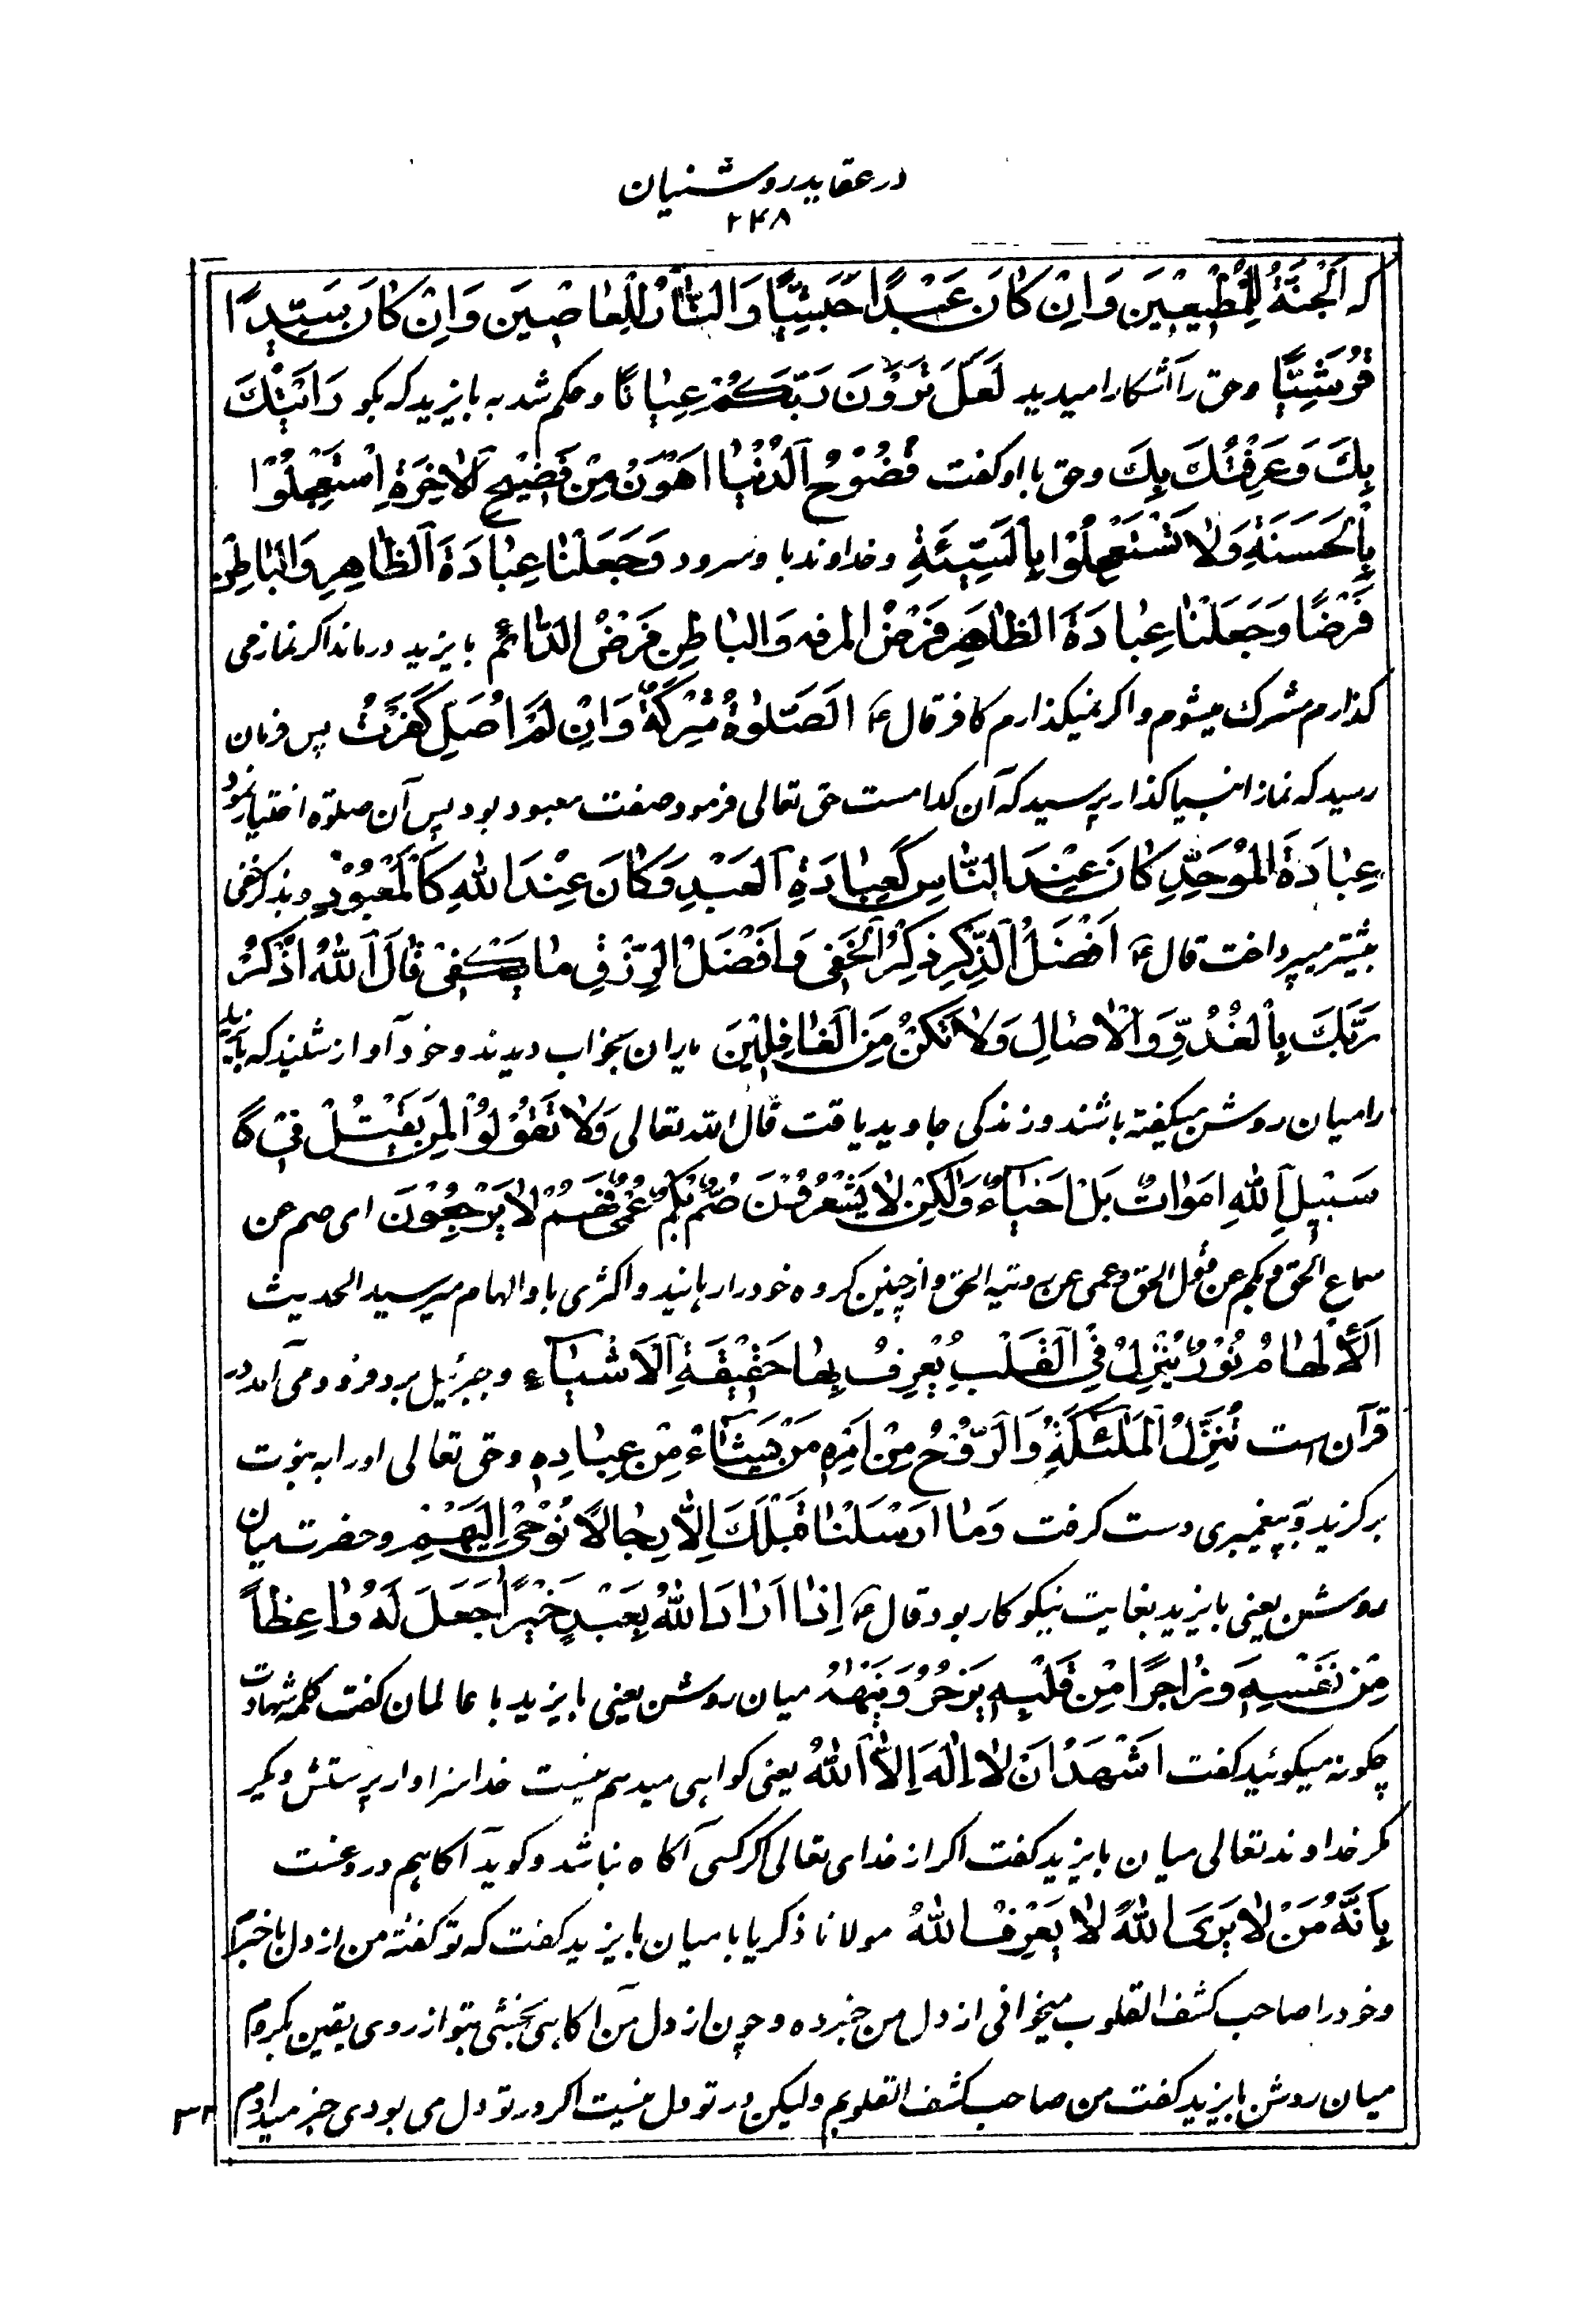 در عقاید روشنیان
۲۴۸
که اَلْجَنَّةُ لِلْمُطِیْعِیْنَ وَاِنْ کَانَ عَبْدًا حَبَشِیًّا وَالنَّارُ لِلْعَاصِیْنَ وَاِنْ کَانَ سَیِّدًا
قُرَیْشِیًّا وحق را آشکارا میدید لَعَلَّ تَرَوْنَ رَبَّکُمْ عِیَانًا وحکم شد به بایزید که بکو رَاَیْتُكَ
بِكَ وَعَرِفْتُكَ بِكَ وحق با او کفت فُضُوْحُ الدُّنْیَا اَهْوَنُ مِنْ فَضِیْحِ الْاٰخِرَةِ اِسْتَعْجِلُوْا
بِالْحَسَنَةِ وَلَا تَسْتَعْجِلُوْا بِالسَّیِّئَةِ وخداوند با وسرود وَجَعَلْنَا عِبَادَةَ الظَّاهِرِ وَالْبَاطِنِ
فَرْضًا وَجَعَلْنَا عِبَادَةَ الظَّاهِرِ فَرْضُ المرفه وَالْبَاطِنِ فَرْضُ الدَّائِمُ بایزید درماند اکر نماز می
کذارم مشرك میشوم واکر نمیکذارم کافر قال ع الصَّلٰوةُ شِرْکَةٌ وَاِنْ لَمْ اُصَلِّ کَفَرْتُ پس فرمان
رسید که نماز انبیا کذار پرسید که آن کدامست حق تعالی فرمود صفت معبود بود پس آن صلوة اختیار نمود
عِبَادَةَ الْمُوَحِّدِ کَانَ عِنْدَ النَّاسِ کَعِبَادَةِ الْعَبْدِ وَکَانَ عِنْدَ اللهِ کَالْمَعْبُوْدِ وبذکر خفی
بیشتر میپرداخت قال ع اَفْضَلُ الذِّکْرِ ذِکْرُ الْخَفِی وَاَفْضَلُ الرِّزْقِ مَا یَکْفِیْ قَالَ اللهُ اُذْکُرْ
رَبَّكَ بِالْغُدُوِّ وَالْاٰصَالِ وَلَا تَکُنْ مِنَ الْغَافِلِیْنَ یاران بخواب دیدند وخود آواز شنید که بایزید
را میان روشن میکفته باشند وزندکی جاوید یافت قال الله تعالی وَلَا تَقُوْلُوْا لِمَنْ یَقْتُلُ فِیْ
سَبِیْلِ اللهِ اَمْوَاتٌ بَلْ اَحْیَاءٌ وَلٰکِنْ لَا یَشْعُرُوْنَ صُمٌّ بُکْمٌ عُمْیٌ فَهُمْ لَا یَرْجِعُوْنَ ای صم عن
سماع الحق وبکم عن قول الحق وعمی عن رویته الحق واز چنین کروه خود را رهانید واکثری باو الهام میرسید الحدیث
اَلْاِلْهَامُ نُوْرٌ یُنْزِلُ فِی الْقَلْبِ یُعْرِفُ بِهَا حَقِیْقَةِ الْاَشْیَاءِ وجبرئیل برو فرود می آمد در
قرآن است تُنَزِّلُ الْمَلٰئِکَةِ وَالرُّوْحُ مِنْ اَمْرِهِ مَنْ یَشَاءُ مِنْ عِبَادِهِ وحق تعالی او را به نبوت
برکزید وپیغمبری دست کرفت وَمَا اَرْسَلْنَا قَبْلَكَ اِلَّا رِجَالًا نُوْحِیْ اِلَیْهِمْ وحضرت میان
روشن یعنی بایزید بغایت نیکوکار بود قال ع اِذَا اَرَادَ اللهُ بِعَبْدٍ خَیْرًا جَعَلَ لَهُ وَاعِظًا
مِنْ نَفْسِهِ وَزَاجِرًا مِنْ قَلْبِهِ یَزْجُرُ وَیَنْهٰهُ میان روشن یعنی بایزید با عالمان کفت کلمه شهادت
چکونه میکوئید کفت اَشْهَدُ اَنْ لَا اِلٰهَ اِلَّا اللهُ یعنی کواهی میدهم نیست خدا سزاوار پرستش دیکر
مکر خداوند تعالی میان بایزید کفت اکر از خدای تعالی اکر کسی آکاه نباشد وکوید آکاهم دروغست
بِاَنَّهُ مَنْ لَا یَرَی اللهَ لَا یَعْرِفُ اللهَ مولانا ذکریا با میان بایزید کفت که تو کفتهٔ من از دل با خبرم
وخود را صاحب کشف القلوب میخوانی از دل من خبر ده وچون از دل من آکاهی بخشی بتو از روی یقین بکروم
میان روشن بایزید کفت من صاحب کشف القلوبم ولیکن در تو دل نیست اکر در تو دل می بودی خبر میدادم